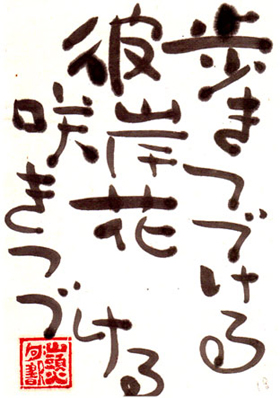 歩きつづける
彼岸花
咲きつづける
山頭火